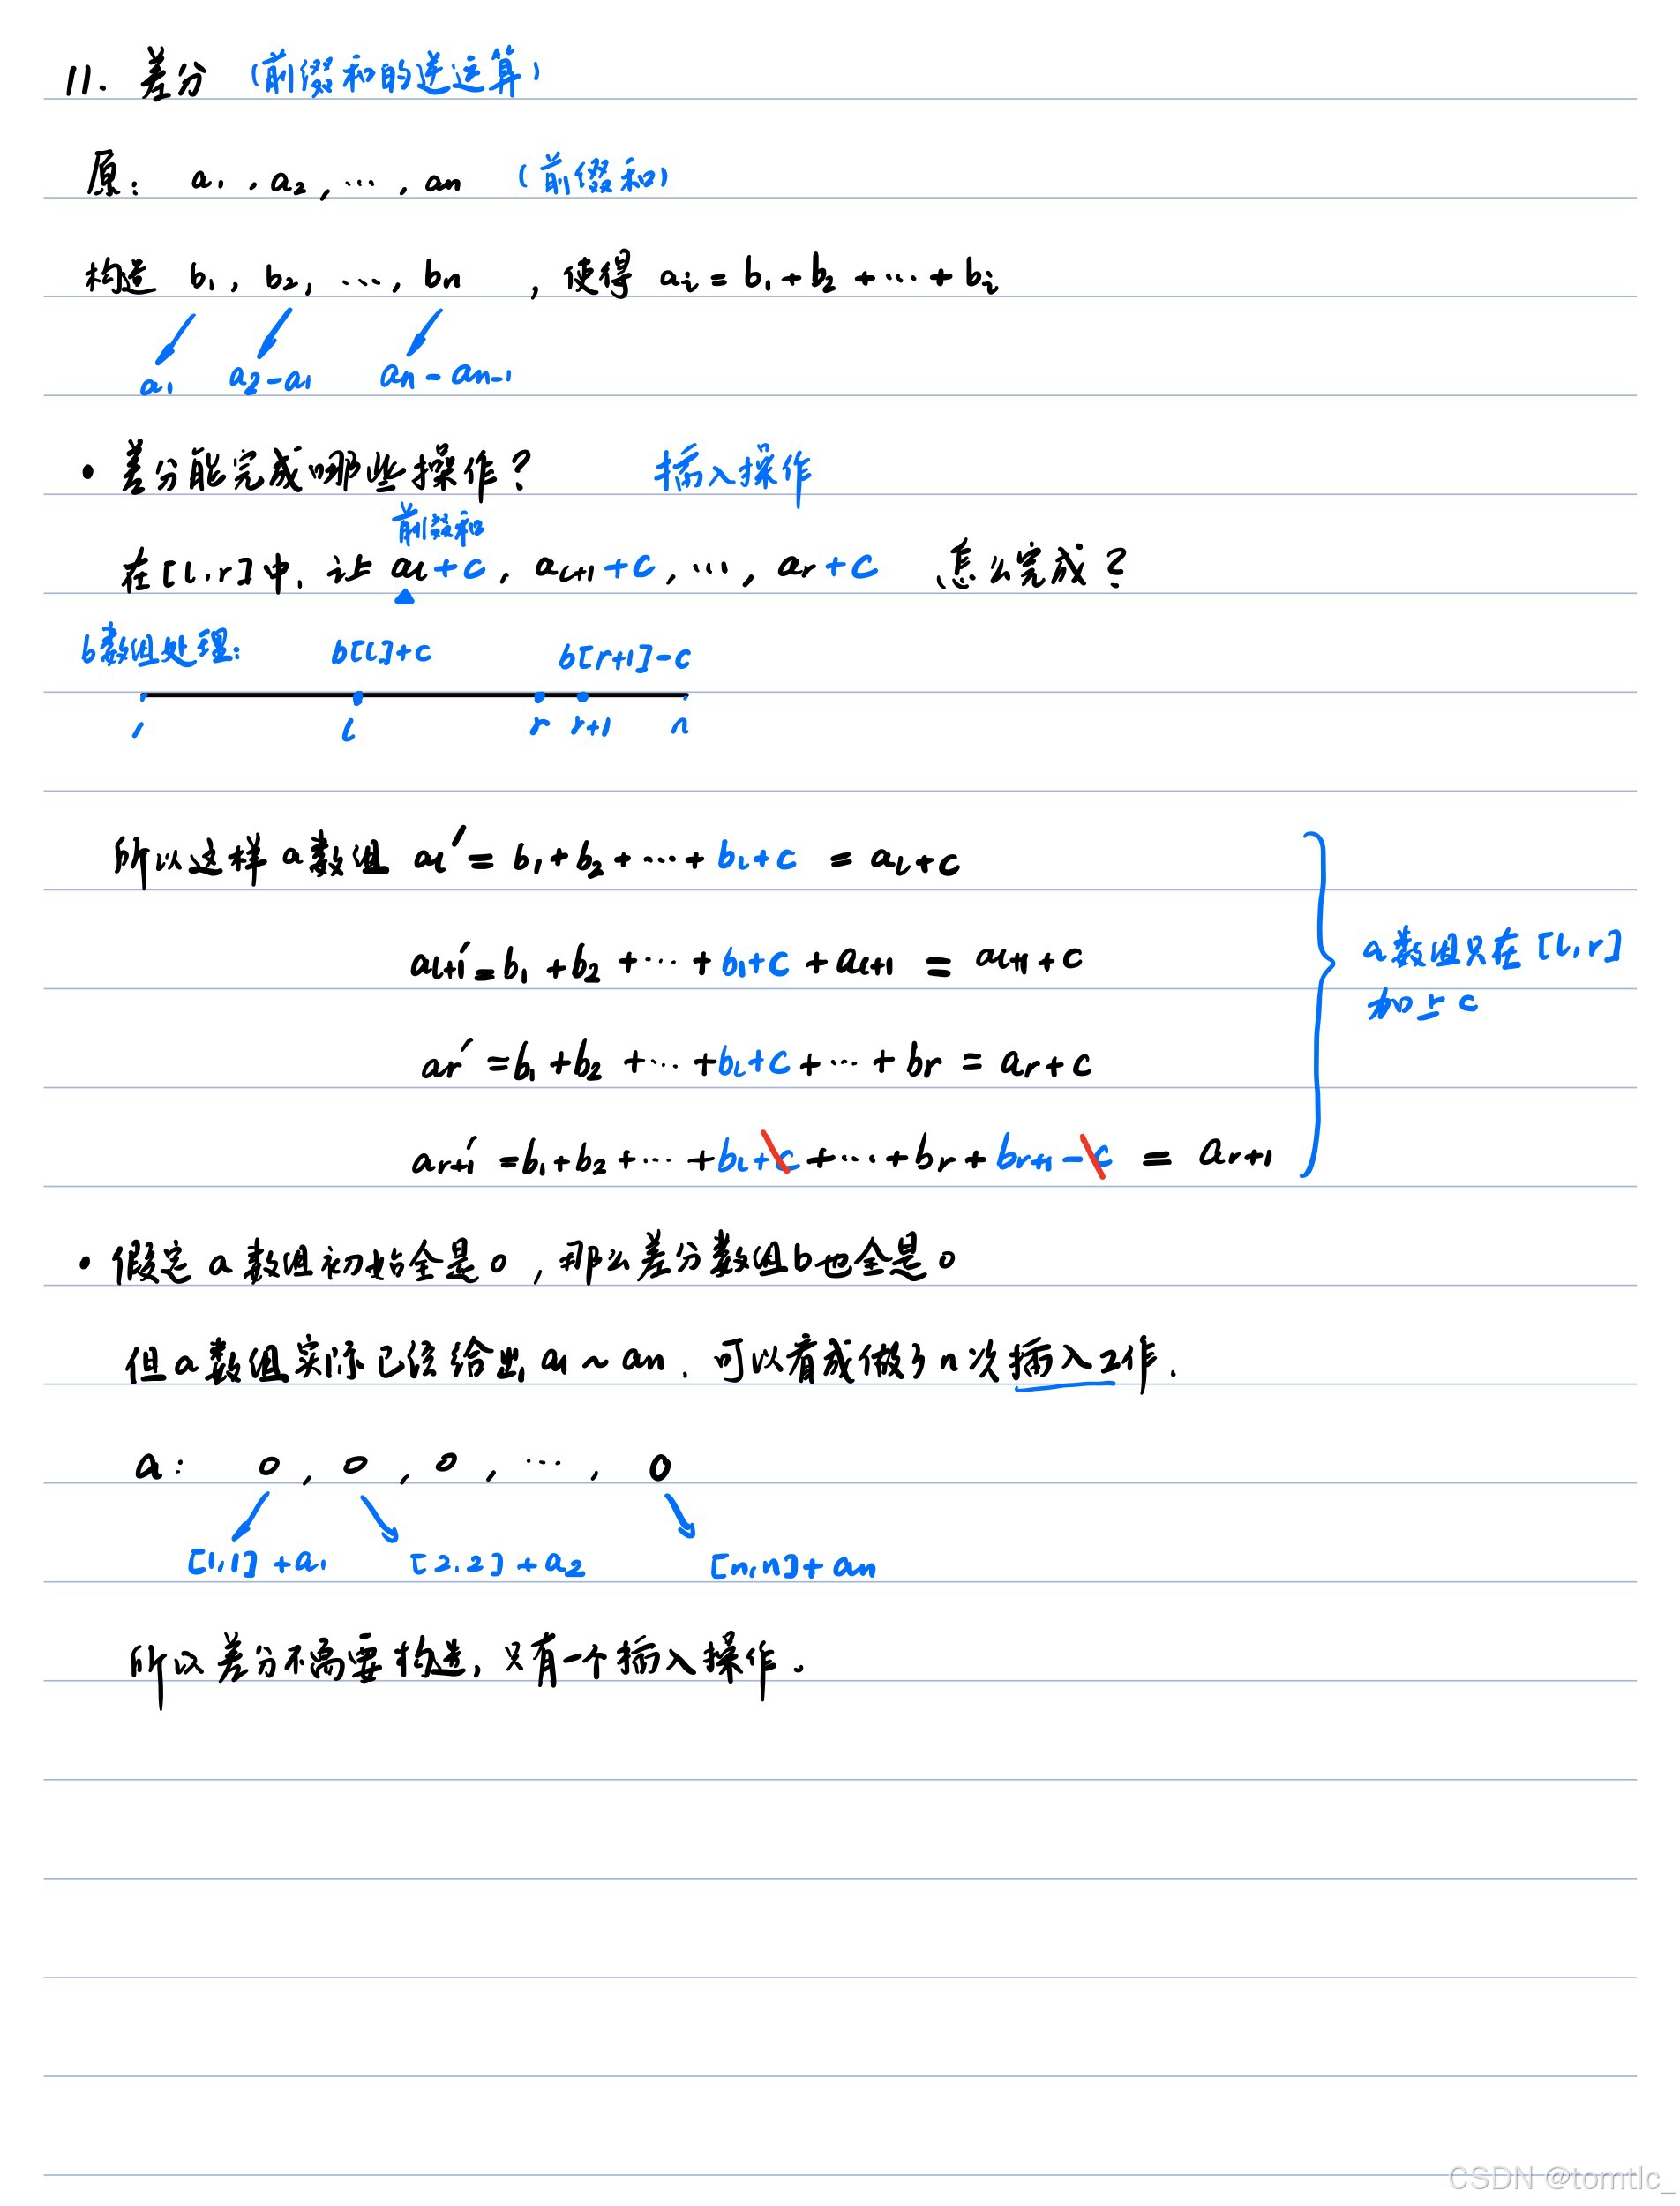 11. 差分 (前缀和的逆运算)
原: a1, a2, ..., an (前缀和)
构造 b1, b2, ..., bn , 使得 ai = b1 + b2 + ... + bi
a1 a2-a1 an-an-1
• 差分能完成哪些操作? 插入操作
前缀和
在[l,r]中, 让 al+c, al+1+c, ..., ar+c 怎么完成?
b数组处理: b[l]+c b[r+1]-c
1 l r r+1 n
所以这样 a数组 al' = b1+b2+...+bl+c = al+c
al+1' = b1+b2+...+b1+c+al+1 = al+1+c
a数组只在[l,r]
加上c
ar' = b1+b2+...+bl+c+...+br = ar+c
ar+1' = b1+b2+...+bl+c+...+br+br+1-c = ar+1
• 假定a数组初始全是0, 那么差分数组b也全是0
但a数组实际已经给出a1~an. 可以看成做了n次插入工作.
a: 0, 0, 0, ..., 0
[1,1]+a1 [2,2]+a2 [n,n]+an
所以差分不需要构造, 只有一个插入操作.
CSDN @tomtlc_